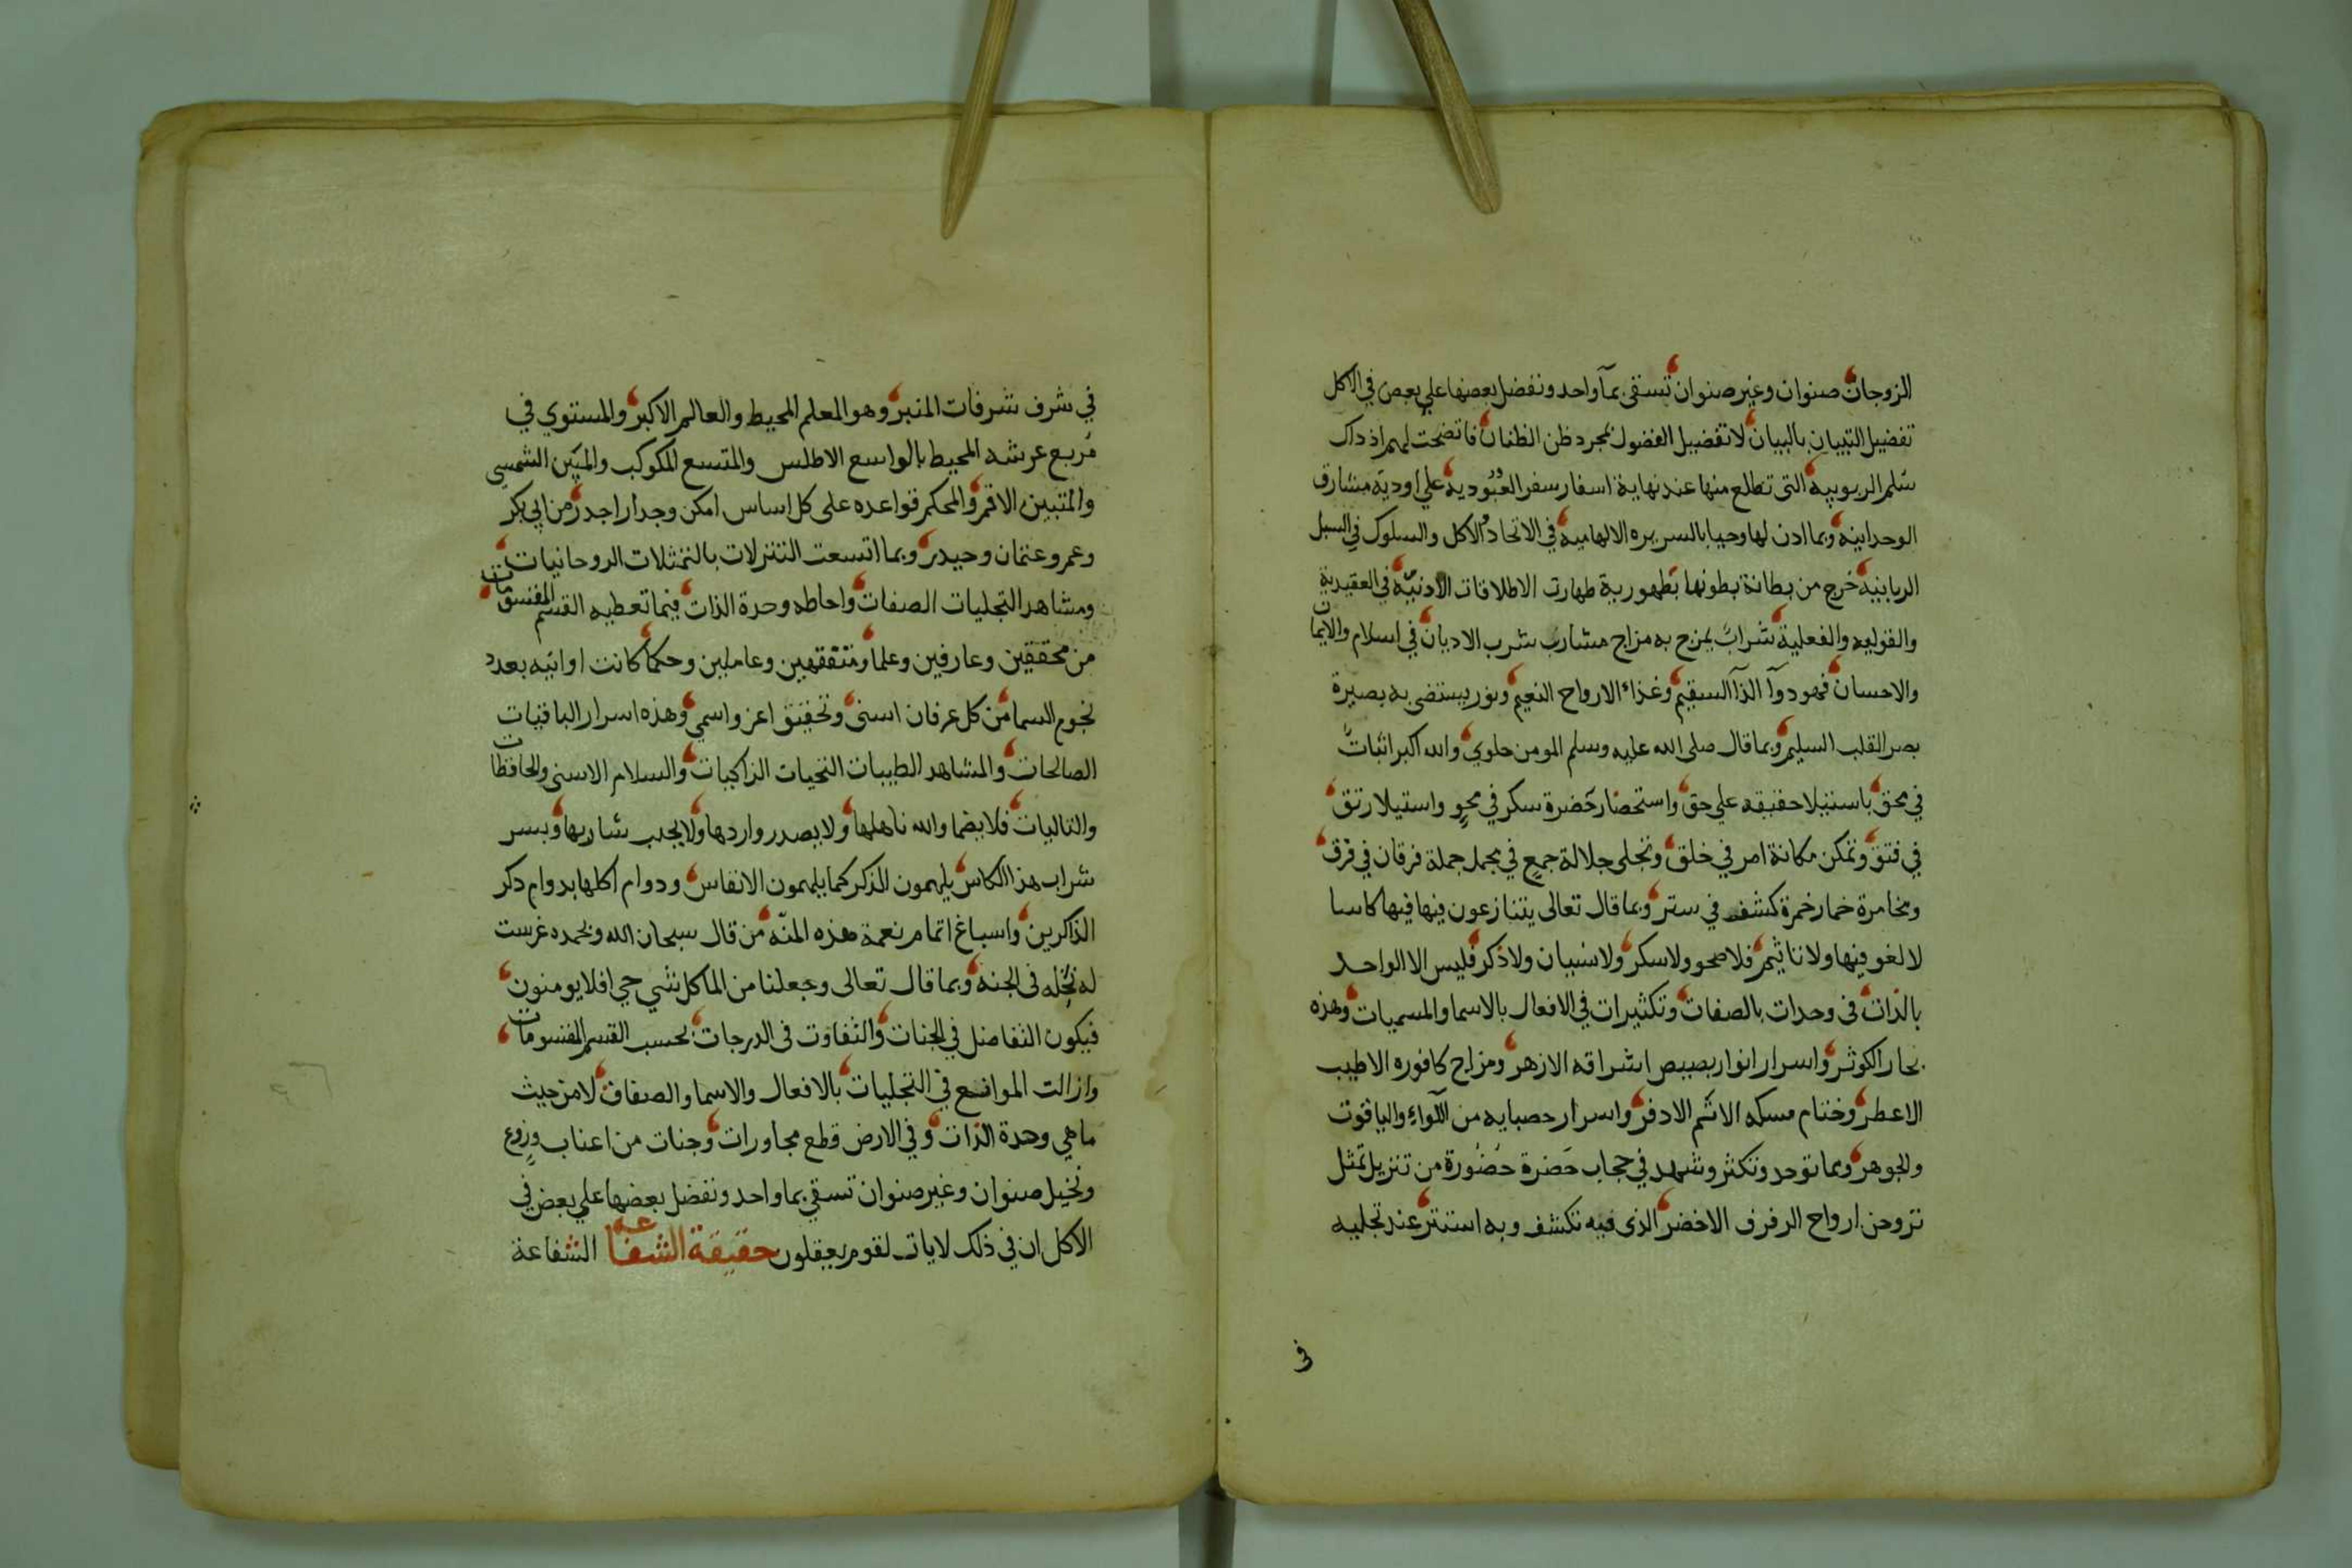 الزوجات صنوان وغير صنوان تسقى بمآ واحد ونفضل بعضها علي بعض في الاكل
تفضيل التبيان بالبيان لا تفضيل الفضول بمجرد ظن الظنان فاتضحت لهم اذ داك
سلم الربوبية التى تطلع منها عند نهاية اسفار سفر العبودية علي اودية مشارق
الوحدانيه وبما ادن لها وحيا بالسريره الالهامية في الاتحاد والاكل والسلوك في السبل
الربانية خرج من بطانة بطونها بطهورية طهارت الاطلاقات الادنيّة في العقيدية
والقوليه والفعلية شراب يمزج به مزاج مشارب شرب الاديان في اسلام والايمان
والاحسان فهو دوآ الدآ السقيم وغذاء الارواح النعيم ونور يستضى به بصيرة
بصر القلب السليم وبما قال صلى الله عليه وسلم المومن حلوي والله اكبر اثبات
في محق باستيلا حقيقه علي حق واستحضار حضرة سكر في محو واستيلا رتق
في فتق وتمكن مكانة امر في خلق وتجلى جلالة جمع في مجمل جملة فرقان في فرق
ومخامرة خمار خمرة كشف في ستر وبما قال تعالى يتنازعون فيها فيها كاسا
لا لغو فيها ولا تاثيم فلا صحو ولا سكر ولا نسيان ولا ذكر فليس الا الواحد
بالذات في وحدات بالصفات وتكثيرات في الافعال بالاسما والمسميات وهذه
بحار الكوثر واسرار انوار بصيص اشراقه الازهر ومزاج كافوره الاطيب
الاعطر وختام مسكه الاشم الادفر واسرار حصبايه من اللواء والياقوت
والجوهر وبما توحد وتكثر وشهد في حجاب حضرة حضورة من تنزيل تمثل
تروحن ارواح الرفرف الاخضر الذى فيه تكشف وبه استتر عند تجليه
في
في شرف شرفات المنبر وهو المعلم المحيط والعالم الاكبر والمستوي في
مربع عرشه المحيط بالواسع الاطلس والمتسع المكوكب والمبين الشمسي
والمتبين الاقمر والمحكم قواعده على كل اساس امكن وجدار اجدر من ابي بكر
وعمر وعثمان وحيدر وبما اتسعت التنزلات بالتمثلات الروحانيات
ومشاهد التجليات الصفات واحاطه وحدة الذات فيما تعطيه القسم المقسومات
من محققين وعارفين وعلما ومتفقهين وعاملين وحكما كانت اوانيه بعدد
نجوم السما من كل عرفان اسنى وتحقيق اعز واسمي وهذه اسرار الباقيات
الصالحات والمشاهد الطيبات التحيات الزاكيات والسلام الاسنى والحافظات
والتاليات فلا يضما والله ناهلها ولا يصدر واردها ولا يحجب شاربها وبسر
شراب هذا الكاس يلهمون الذكر كما يلهمون الانفاس ودوام اكلها بدوام دكر
الذاكرين واسباغ اتمام نعمة هذه المنّه من قال سبحان الله وبحمده غرست
له نخله فى الجنه وبما قال تعالى وجعلنا من الما كل شي حي افلا يومنون
فيكون التفاضل في الجنات والتفاوت فى الدرجات بحسب القسم المقسومات
وازالت الموانع في التجليات بالافعال والاسما والصفات لا من حيث
ما هي وحدة الذات وفي الارض قطع مجاورات وجنات من اعناب وزرع
ونخيل صنوان وغير صنوان تسقي بما واحد ونفضل بعضها علي بعض في
الاكل ان في ذلك لايات لقوم يعقلون حقيقة الشفاعه الشفاعة